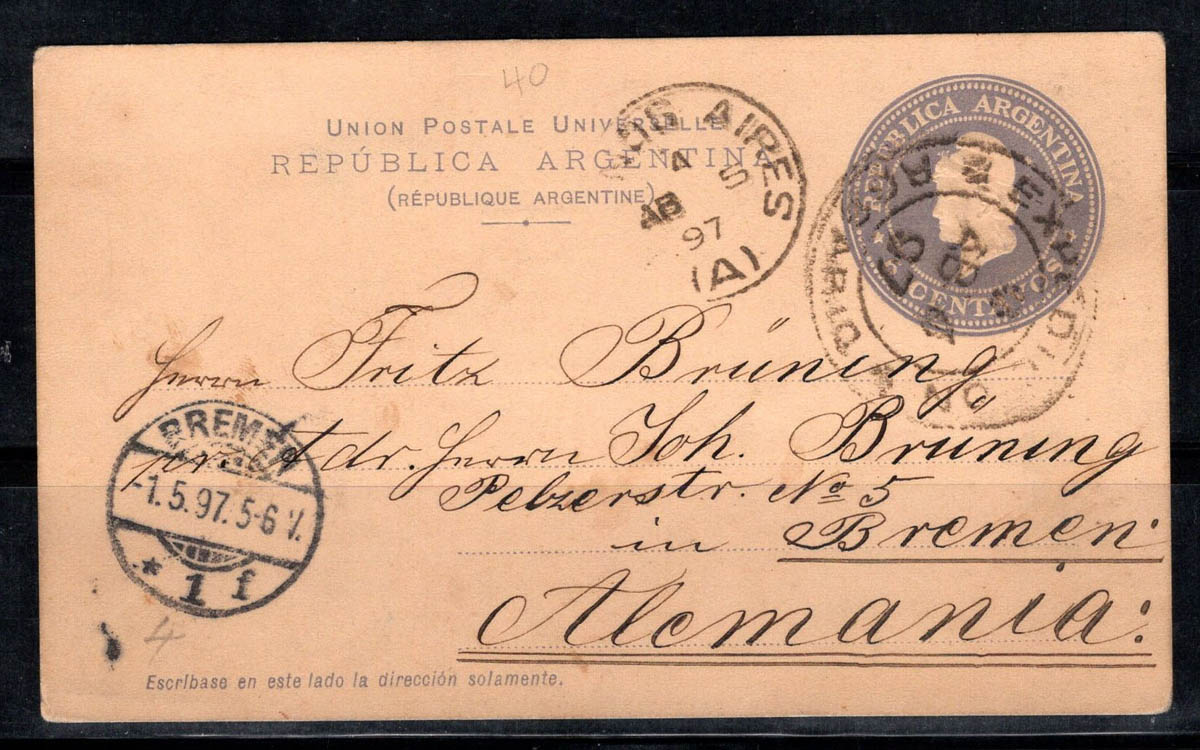 40
UNION POSTALE UNIVERSELLE
REPÚBLICA ARGENTINA
(RÉPUBLIQUE ARGENTINE)
REPÚBLICA ARGENTINA
CENTAVOS
AIRES
4 S
AB
97
(A)
AB
97
Herrn Fritz Brüning
adr. Herrn Joh. Brüning
Pelzerstr. No 5
in Bremen:
Alemania:
BREMEN
-1.5.97.5-6 V.
* 1 f
4
Escríbase en este lado la dirección solamente.